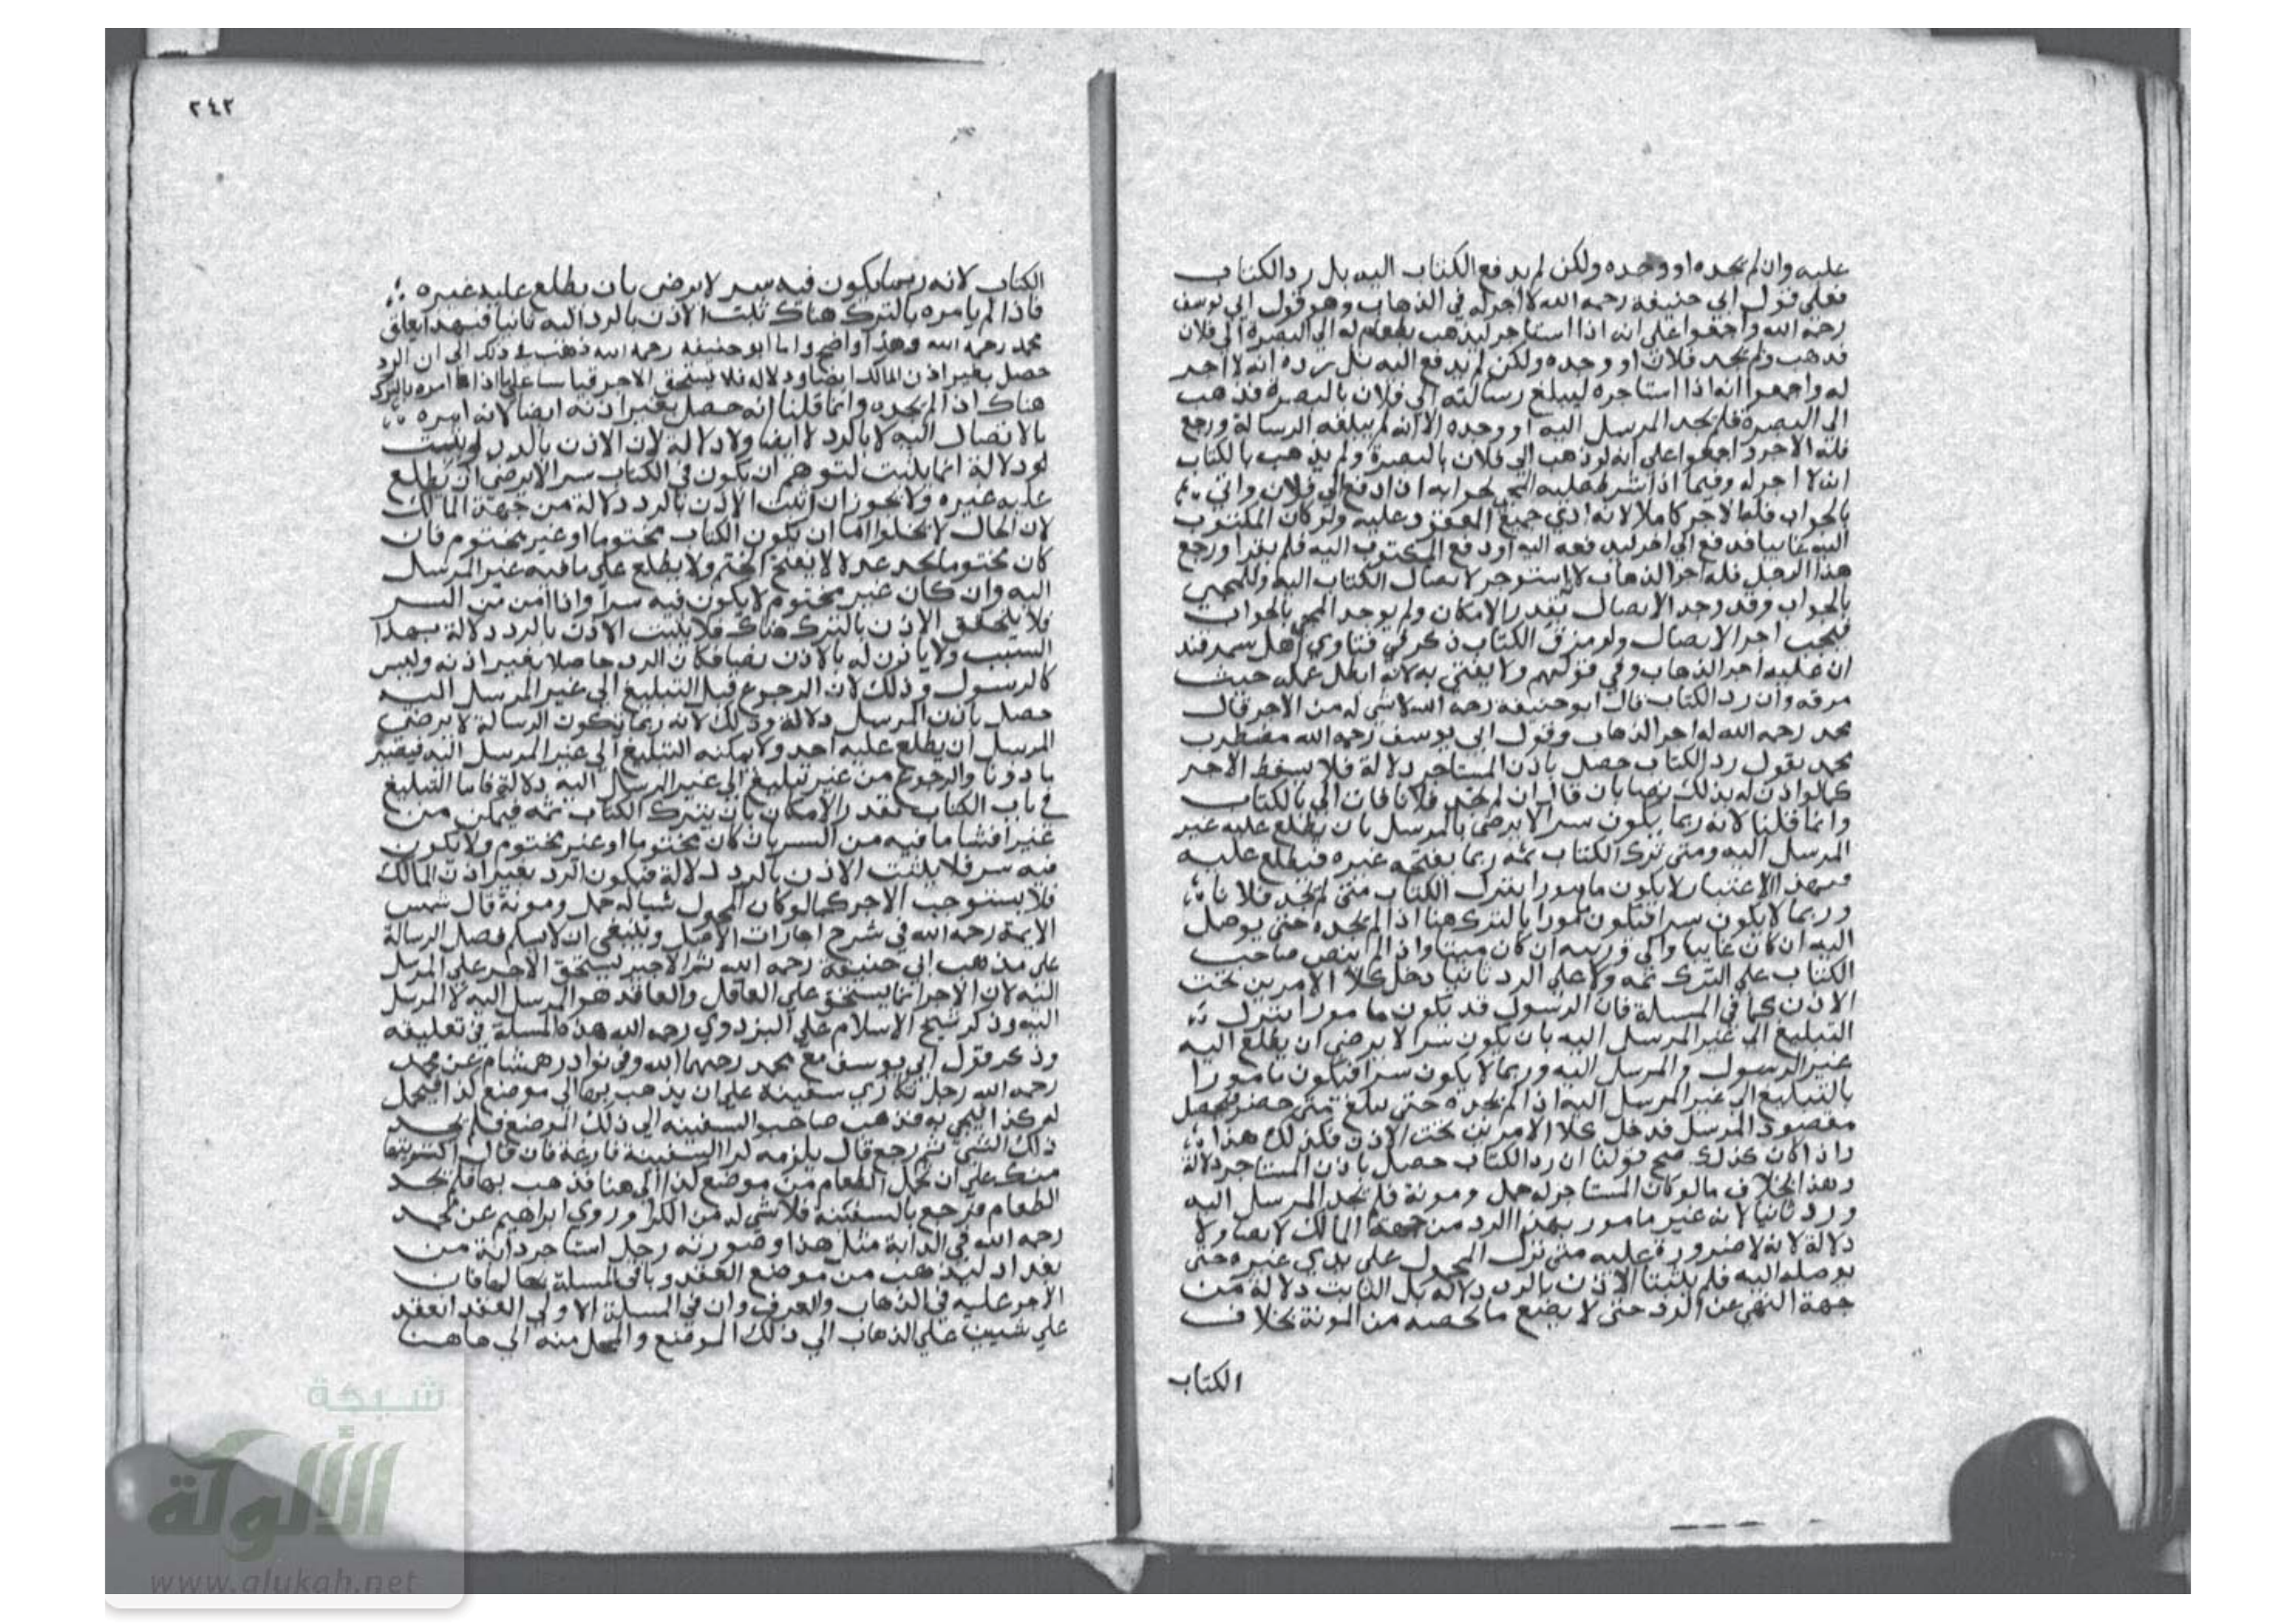 عليه وان لم يجده او وجده ولكن لم يدفع الكتاب اليه بل رد الكتاب
فعلى قول ابي حنيفة رحمه الله لا اجر له في الذهاب وهو قول ابي يوسف
رحمه الله واجمعوا على انه اذا استاجر ليذهب بطعام له الى البصرة الى فلان
فذهب ولم يجد فلانا او وجده ولكن لم يدفع اليه بل رده انه لا اجر
له واجمعوا انه اذا استاجره ليبلغ رسالته الى فلان بالبصرة فذهب
الى البصرة فلم يجد المرسل اليه او وجده الا انه لم يبلغه الرسالة ورجع
فله الاجر واجمعوا على انه لو ذهب الى فلان بالبصرة ولم يذهب بالكتاب
انه لا اجر له وفيما اذا شرط عليه المجي بجوابه ان ادفع الى فلان واتى
بالجواب فله الاجر كاملا لانه ادى جميع المعقود عليه ولو كان المكتوب
اليه غايبا فدفع الى اخر ليدفعه اليه او دفع المكتوب اليه فلم يقرا ورجع
هذا الرجل فله اجر الذهاب لا استوجر لايصال الكتاب اليه وللمجي
بالجواب وقد وجد الايصال بقدر الامكان ولم يوجد المجي بالجواب
فيجب اجر الايصال ولو مزق الكتاب ذكر في فتاوي اهل سمرقند
ان عليه اجر الذهاب وفي قولهم ولا يفتي به لانه ابطل عمله حيث
مزقه وان رد الكتاب قال ابو حنيفة رحمه الله لا شي له من الاجر قال
محمد رحمه الله له اجر الذهاب وقول ابي يوسف رحمه الله مضطرب
محمد يقول رد الكتاب حصل باذن المستاجر دلالة فلا يسقط الاجر
كما لو اذن له بذلك نصا بان قال ان لم تجد فلانا فات الي بالكتاب
وانما قلنا لانه ربما يكون سرا لا يرضى بالمرسل بان يطلع عليه غير
المرسل اليه ومتى ترك الكتاب ثمه ربما يفتحه غيره فيطلع عليه
فبهذا الاعتبار لا يكون مامورا بترك الكتاب متى لم يجد فلانا
وربما لا يكون سرا فيكون مامورا بالترك هنا اذا لم يجده حتى يوصل
اليه ان كان غايبا والى وريثه ان كان ميتا واذا لم ينص صاحب
الكتاب على الترك ثمه ولا على الرد ثانيا دخل كلا الامرين تحت
الاذن كما في المسلة فان الرسول قد يكون مامورا بترك
التبليغ الى غير المرسل اليه بان يكون سرا لا يرضى ان يطلع اليه
غير الرسول والمرسل اليه وربما لا يكون سرا فيكون مامورا
بالتبليغ الى غير المرسل اليه اذا لم يجده حتى يبلغ متى حضر فيحصل
مقصود المرسل فدخل كلا الامرين تحت الاذن فكذلك هذا
واذا كان كذلك صح قولنا ان رد الكتاب حصل باذن المستاجر دلالة
وهذا بخلاف ما لو كان المستاجر له حمل ومونة فلم يجد المرسل اليه
ورد ثانيا لانه غير مامور بهذا الرد من جهة المالك لا نصا ولا
دلالة لانه لا ضرورة عليه متى ترك المحمول على يدي غيره حتى
يوصله اليه فلم يثبت الاذن بالرد دلالة بل الثابت دلالة من
جهة النهي عن الرد حتى لا يضيع ما لحصه من المونة بخلاف
الكتاب
٢٤٢
الكتاب لانه ربما يكون فيه سر لا يرضى بان يطلع عليه غيره
فاذا لم يامره بالترك هناك ثبت الاذن بالرد اليه ثانيا فبهذا يعلق
محمد رحمه الله وهذا واضح واما ابو حنيفة رحمه الله ذهب في ذلك الى ان الرد
حصل بغير اذن المالك ايضا ودلالة فلا يستحق الاجر قياسا على ما اذا امره بالترك
هناك اذا لم يجده وانما قلنا انه حصل بغير اذنه ايضا لانه امره
بالايصال اليه لا بالرد لا ايضا ولا دلالة لان الاذن بالرد لو يثبت
لو دلالة انما يثبت لتوهم ان يكون في الكتاب سر لا يرضى ان يطلع
عليه غيره ولا يجوز ان اثبت الاذن بالرد دلالة من جهة المالك
لان الحال لا يخلوا اما ان يكون الكتاب مختوما او غير مختوم فان
كان مختوما يجد عدلا لا يفتح الختم ولا يطلع على ما فيه غير المرسل
اليه وان كان غير مختوم لا يكون فيه سرا واذا امن من السر
فلا يتحقق الاذن بالترك هناك فلا يثبت الاذن بالرد دلالة بهذا
السبب ولا ياذن له بالاذن نصا فكان الرد حاصلا بغير اذنه وليس
كالرسول وذلك لان الرجوع قبل التبليغ الى غير المرسل اليه
حصل باذن المرسل دلالة وذلك لانه ربما يكون الرسالة لا يرضى
المرسل ان يطلع عليه احد ولا يمكنه التبليغ الى غير المرسل اليه فيصير
ماذونا والرجوع من غير تبليغ الى غير المرسل اليه دلالة فاما التبليغ
في باب الكتاب بقدر الامكان بان يترك الكتاب ثمه فيمكن من
غير افشا ما فيه من السر بان كان مختوما او غير مختوم ولا يكون
فيه سر فلا يثبت الاذن بالرد لدلالة فيكون الرد بغير اذن المالك
فلا يستوجب الاجر كما لو كان المحمول شيا له حمل ومونة قال شمس
الايمة رحمه الله في شرح اجارات الاصل وينبغي ان لا يسلم فصل الرسالة
على مذهب ابي حنيفة رحمه الله ثم الاجير يستحق الاجر على المرسل
اليه لان الاجر انما يستحق على العاقل والعاقد هو المرسل اليه لا المرسل
اليه وذكر شيخ الاسلام علي البزدوي رحمه الله هذه المسلة في تعليقه
وذكر قول ابي يوسف مع محمد رحمهما الله وفي نوادر هشام عن محمد
رحمه الله رجل تكاري سفينة على ان يذهب بها الى موضع كذا فيحمل
له كذا الي به فذهب صاحب السفينه الى ذلك الموضع فلم يجد
ذلك الشي ثم رجع قال يلزمه كرا السفينة فارغة فان قال اكتريتها
منك على ان تحمل الطعام من موضع كذا الى هنا فذهب بها فلم يجد
الطعام فرجع بالسفينة فلا شي له من الكرا وروي ابراهيم عن محمد
رحمه الله في الدابة مثل هذا وصورته رجل استاجر دابة من
بغداد ليذهب من موضع العقد وباقي المسلة بحالها فان
الاجر عليه في الذهاب والعرف وان في المسلة الاولى العقد انعقد
على شيين على الذهاب الى ذلك الموضع والحمل منه الى هاهنا
شبكة
الألوكة
www.alukah.net